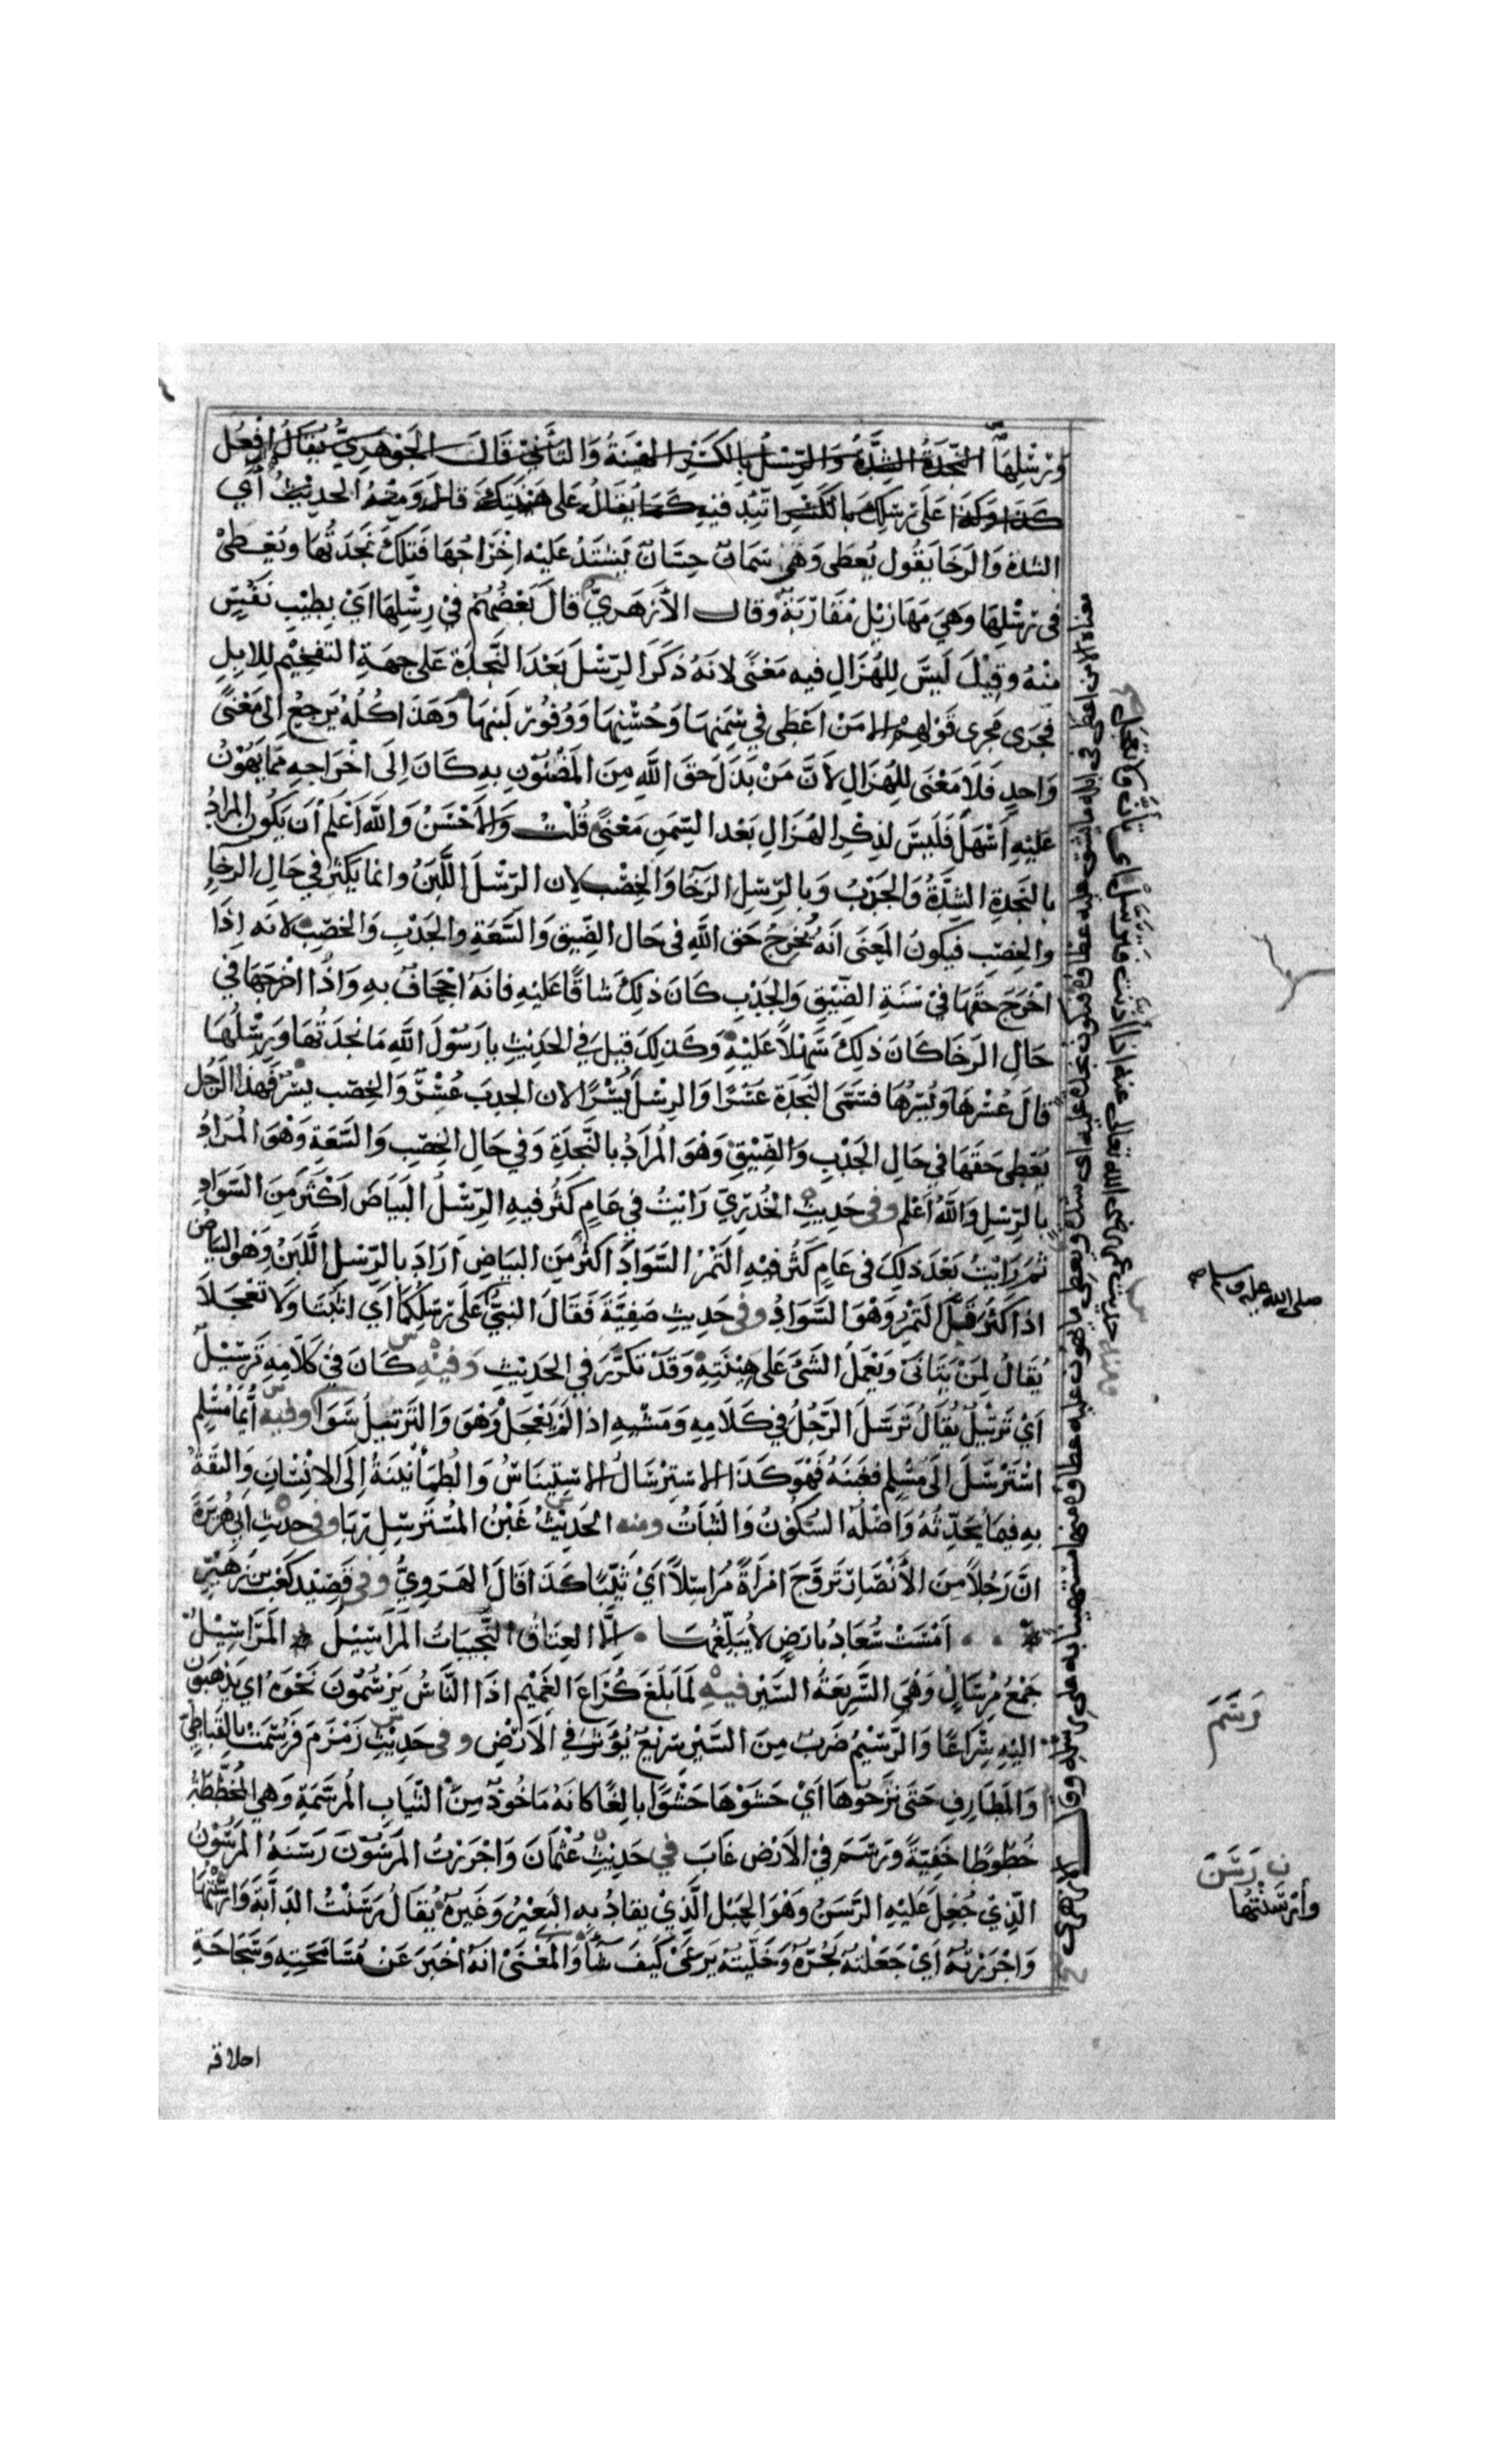 وَرِسْلِهَا النَّجْدَةُ الشِّدَّةُ وَالرِّسْلُ بِالْكَسْرِ الهِيْنَةُ وَالتَّأَنِّي قَالَ الْجَوْهَرِيُّ يُقَالُ افْعَلْ
كَذَا وَكَذَا عَلَى رِسْلِكَ بِالْكَسْرِ اتَّئِدْ فِيهِ كَمَا يُقَالُ عَلَى هِيْنَتِكَ قَالَ وَمِنْهُ الْحَدِيْثُ أَي
الشدة وَالرخَا يَقُول يُعطَى وَهِيَ سِمَان حِسَانٌ يَشتَدُّ عَلَيْهِ اخْرَاجُهَا فَتِلكَ نَجْدَتُهَا ويُعْطِىْ
فى رِسْلِهَا وَهِيَ مَهَازِيْل مُقَارِبَة وَقال الأَزهَرِيُّ قَالَ بَعْضُهُمْ فِيْ رِسْلِهَا اَيْ بِطِيْبِ نَفْسٍ
مِنْهُ وقِيْلَ لَيسَ لِلْهُزَالِ فيه مَعْنًى لانَهُ ذَكَرَ الرِّسْلَ بَعْدَ النَّجدَةِ عَلى جِهَةِ التفخِيْمِ لِلابِلِ
فَجَرَى مَجرى قَوْلهِمْ الا مَنْ اَعْطَى فِي سِمَنِهَا وَحُسْنِهَا وَوُفُوْرِ لَبَنِهَا وَهَذَا كُلُّهُ يَرجعُ الى مَعْنًى
وَاحِدٍ فَلَا مَعْنَى لِلهُزَالِ لأَنَّ مَنْ بَذَلَ حَقَ اللَّهِ مِنَ المَضْنُوْنِ بِهِ كَانَ اِلَى اخْرَاجِهِ مِمَّا يَهُوْنُ
عَلَيْهِ اَسْهَلَ فَلَيسَ لِذِكْرِ الهُزَالِ بَعْدَ السِّمَنِ مَعْنًى قُلْتُ وَالاَحْسَنُ وَاللَّه اَعْلَم اَن يَكُون المرَادُ
بِالنَجدَةِ الشِدَّةُ وَالجَدْبُ وَبِالرِّسْلِ الرَخَا وَالخِصْبُ لان الرّسْلَ اللَّبَنُ وانما يَكثر في حَالِ الرخاءِ
والخِصْبِ فيَكونُ المَعنَى انَهُ يُخرِجُ حَق اللَّهِ في حَال الضِّيق وَالسَّعَةِ والجَدْبِ وَالخصب لانه اِذَا
اَخرَجَ حَقَهَا فِيْ سَنَةِ الضِّيْقِ وَالجَدْبِ كَانَ ذلِكَ شاقًا عَلَيْهِ فَانَهُ اجْحَاف بِهِ وَاذَا اخْرَجَهَا فِي
حَالِ الرخَا كَانَ ذلِكَ سَهْلاً عَلَيْهِ وَكَذلِكَ قِيلَ في الحَدِيْثِ يا رَسُوْلَ اللَّهِ مَا نَجدَتُهَا وَرِسْلُهَا
قَالَ عُسْرُهَا وَيُسْرُهَا فسَمَّى النَجدَة عُسْرًا وَالرِسْلَ يُسْرًا لان الجدبَ عُسْرٌ وَالخِصْب يسر فَهذا الرَجُل
يُعطِى حَقَهَا في حَالِ الجَدْبِ وَالضِّيْقِ وَهْوَ المُرَادُ بالنَّجدَةِ وَفي حَالِ الخِصْبِ وَالسَّعَةِ وَهْوَ المُرَادُ
بِالرِّسْلِ وَاللَّهُ اَعْلم وفى حَدِيثِ الخُدْرِيّ رَاَيْتُ فِي عَامٍ كَثُرَ فيهِ الرِّسْلُ البَيَاضَ اَكثَرَ مِنَ السَّوَادِ
ثُمَّ رَاَيْتُ بَعْدَ ذلِكَ فى عَامٍ كَثُرَ فِيْهِ التَّمْرُ السَّوَادَ اَكثَرَ مِنَ البَيَاضِ اَرَادَ بالرِّسْلِ اللَّبَنَ وَهْوَ البيَاضُ
اذا كَثُرَ قَلَّ التَمْرُ وَهْوَ السَّوَادُ وفي حَدِيثِ صَفِيَّةَ فَقَالَ النبيُّ عَلَى رِسْلِكُمَا اَي اثبُتَا وَلَا تعْجَلَا
يُقَالُ لِمَنْ يَتَاَنى وَيَعْمَلُ الشَّئَ عَلى هِيْنَتِهِ وَقَدْ تَكَرَّرَ فِي الحَدِيْثِ وَفيْهِ كَانَ فِيْ كَلَامِهِ تَرْسِيْلٌ
اَيْ تَرتِيْلٌ يُقَالُ تَرَسَّلَ الرَّجُلُ فِي كَلَامِهِ وَمَشْيِهِ اذا لَمْ يَعْجَلْ وَهْوَ وَالتَرتيلُ سَوَا وفيه اَيُّمَا مُسْلِم
اسْتَرْسَلَ اِلَى مُسْلِم فغَبَنَهُ فَهْوَ كَذَا الاسْتِرْسَالُ الاسْتِينَاسُ وَالطُّمَأْنِيْنَةُ اِلَى الاِنْسَانِ وَالثقَةُ
بِهِ فِيمَا يُحَدِّثُهُ وَاصْلُهُ السُّكُوْنُ وَالثَّبَاتُ ومنه الحَدِيْثُ غَبْنُ المُسْتَرسِلِ رِبَا وفي حديث ابي هُرَيْرَةَ
انّ رَجُلاً مِنَ الأَنْصَارِ تَزَوَّجَ امْرَاَةً مُرَاسِلاً اَيْ ثَيِّبًا كَذَا قَالَ الهَرَوِيُّ وفي قَصِيْدِ كَعْبِ بنِ زُهَيْرٍ
اَمْسَتْ سُعَادُ بارْضٍ لا يُبَلِّغُهَا اِلَّا العِتَاقُ النَّجِيبَاتُ المَرَاسِيْلُ المَرَاسِيْلُ
جَمْعُ مِرْسَالٍ وَهْيَ السَّرِيْعَةُ السَّيْرِ فيهِ لَمَا بَلَغَ كُرَاعَ الغَمِيْمِ اذَا النَّاسُ يَرْسُمُونَ نَحْوَهُ اي يَذْهَبُون
اليْهِ سِرَاعًا وَالرَّسِيْمُ ضَربٌ مِنَ السَّيْرِ سَرِيْع يُؤَثِّرُ فِي الاَرْضِ وفي حَدِيْثِ زَمْزَمَ فَرُسِّمَتْ بالقَبَاطِيّ
وَالمَطَارِفِ حَتَّى نَزَحُوْهَا اَيْ حَشَوْهَا حَشْوًا بالِغًا كانَهُ مَاخُوْذٌ مِنَ الثيَابِ المُرَسَّمَةِ وَهي المُخَطَّطَةُ
خُطُوْطًا خَفِيَّةً وَرَسَمَ فِيْ الاَرْضِ غَابَ في حَدِيْثِ عُثْمَانَ وَاجْرَرْتُ المَرْسُوْنَ رَسَنَهُ المَرسُوْنُ
الَّذِيْ جُعِلَ عَلَيْهِ الرَّسَنُ وَهْوَ الحَبْل الَّذِيْ يقادُ بِهِ البَعِيْرُ وَغَيرهُ يُقَالُ رَسَنْتُ الدَابَّةَ وَارْسَنْتُهَا
وَاجْرَرْتُهُ اَيْ جَعَلْتهُ يَجُرّهُ وَخَلّيتهُ يَرعَىْ كَيْفَ شَآ وَالمَعْنَىْ انهُ اَخْبَرَ عَنْ مُسَامَحَتِهِ وَسَجَاحَةِ
اخلاقه
معناه الا من اعطى فى ابله ما يشق عليه عطاؤه فيكون نجدة عليه اى شدة ويعطي ما يهون عليه عطاؤه منها مستهينا به على رسله وقال الازهرى
ومنه حديث عمر رضى الله تعالى عنه اذا اذنت فترسل اى تأن ولا تعجل
صلى الله عليه وسلم صح
رَسَمَ
رَسَنَ
وأَرْسَنْتُهَا